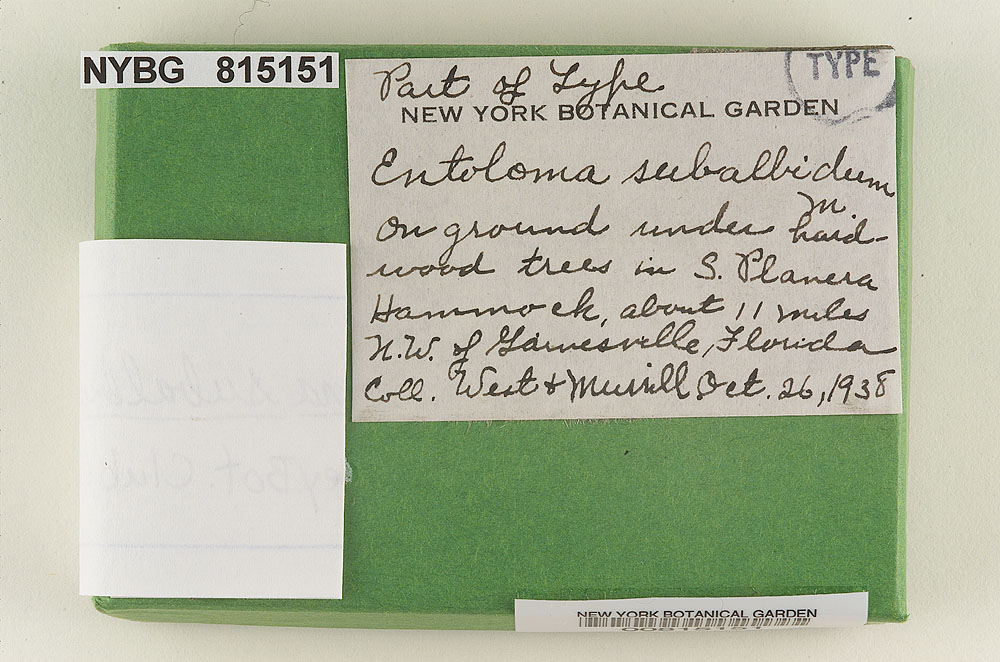 NYBG 815151
TYPE
Part of Type
NEW YORK BOTANICAL GARDEN
Entoloma subalbidum
M.
On ground under hard-
wood trees in S. Planera
Hammock, about 11 miles
N.W. of Gainesville, Florida
Coll. West & Murrill Oct. 26, 1938
NEW YORK BOTANICAL GARDEN